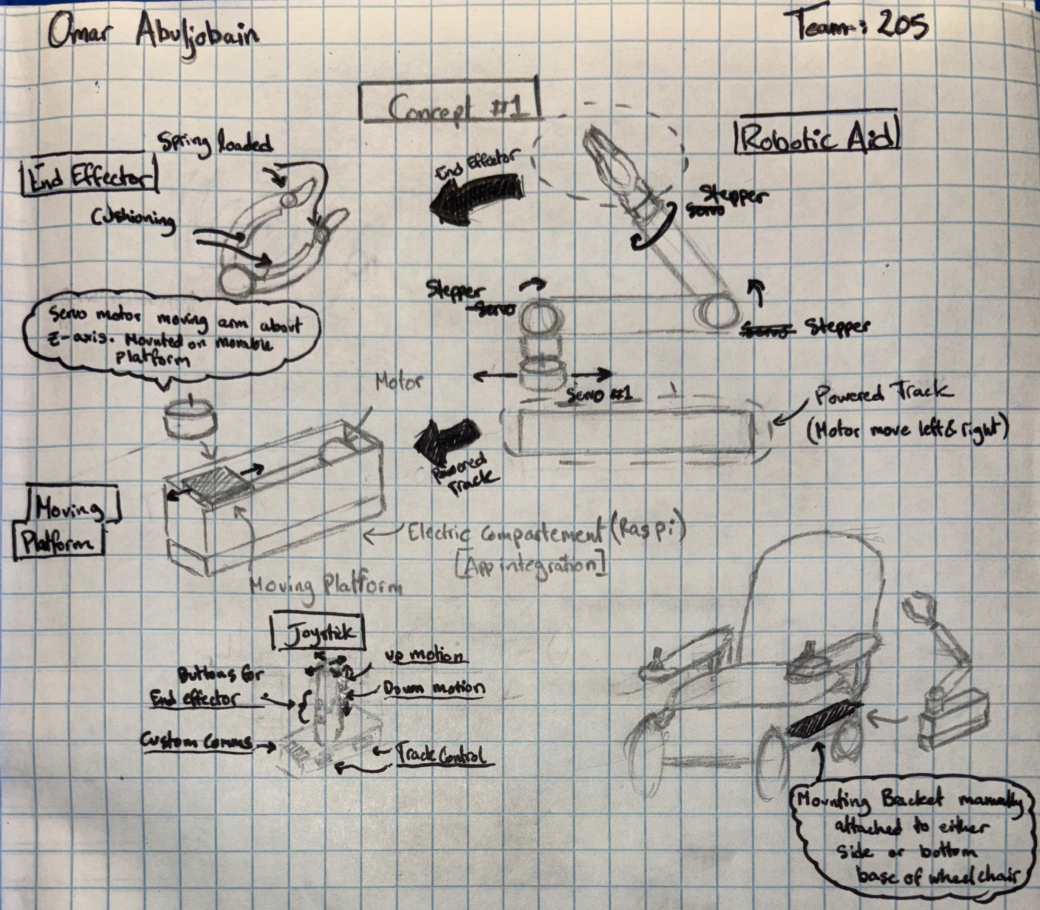 Omar Abuljobain
Team: 205
Concept #1
Robotic Aid
End Effector
Spring loaded
Cushioning
End Effector
Stepper
Servo
Stepper
Servo
Servo Stepper
Servo #1
Servo motor moving arm about
Z-axis. Mounted on movable
platform
Motor
Powered Track
(Motor move left & right)
Powered
Track
Moving
Platform
Electric Compartement (Raspi)
[App integration]
Moving Platform
Joystick
up motion
Buttons for
End effector
Down motion
Custom Comms
Track Control
Mounting Bracket manually
attached to either
side or bottom
base of wheelchair